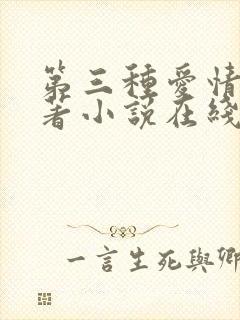 第三種愛情
著小說在綫
一言生死與卿